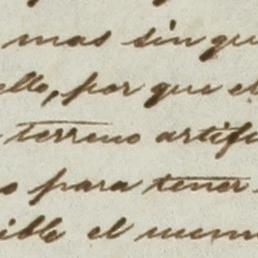 mas sin qu
ello, por que el
terreno artifi
o para tener
ible el